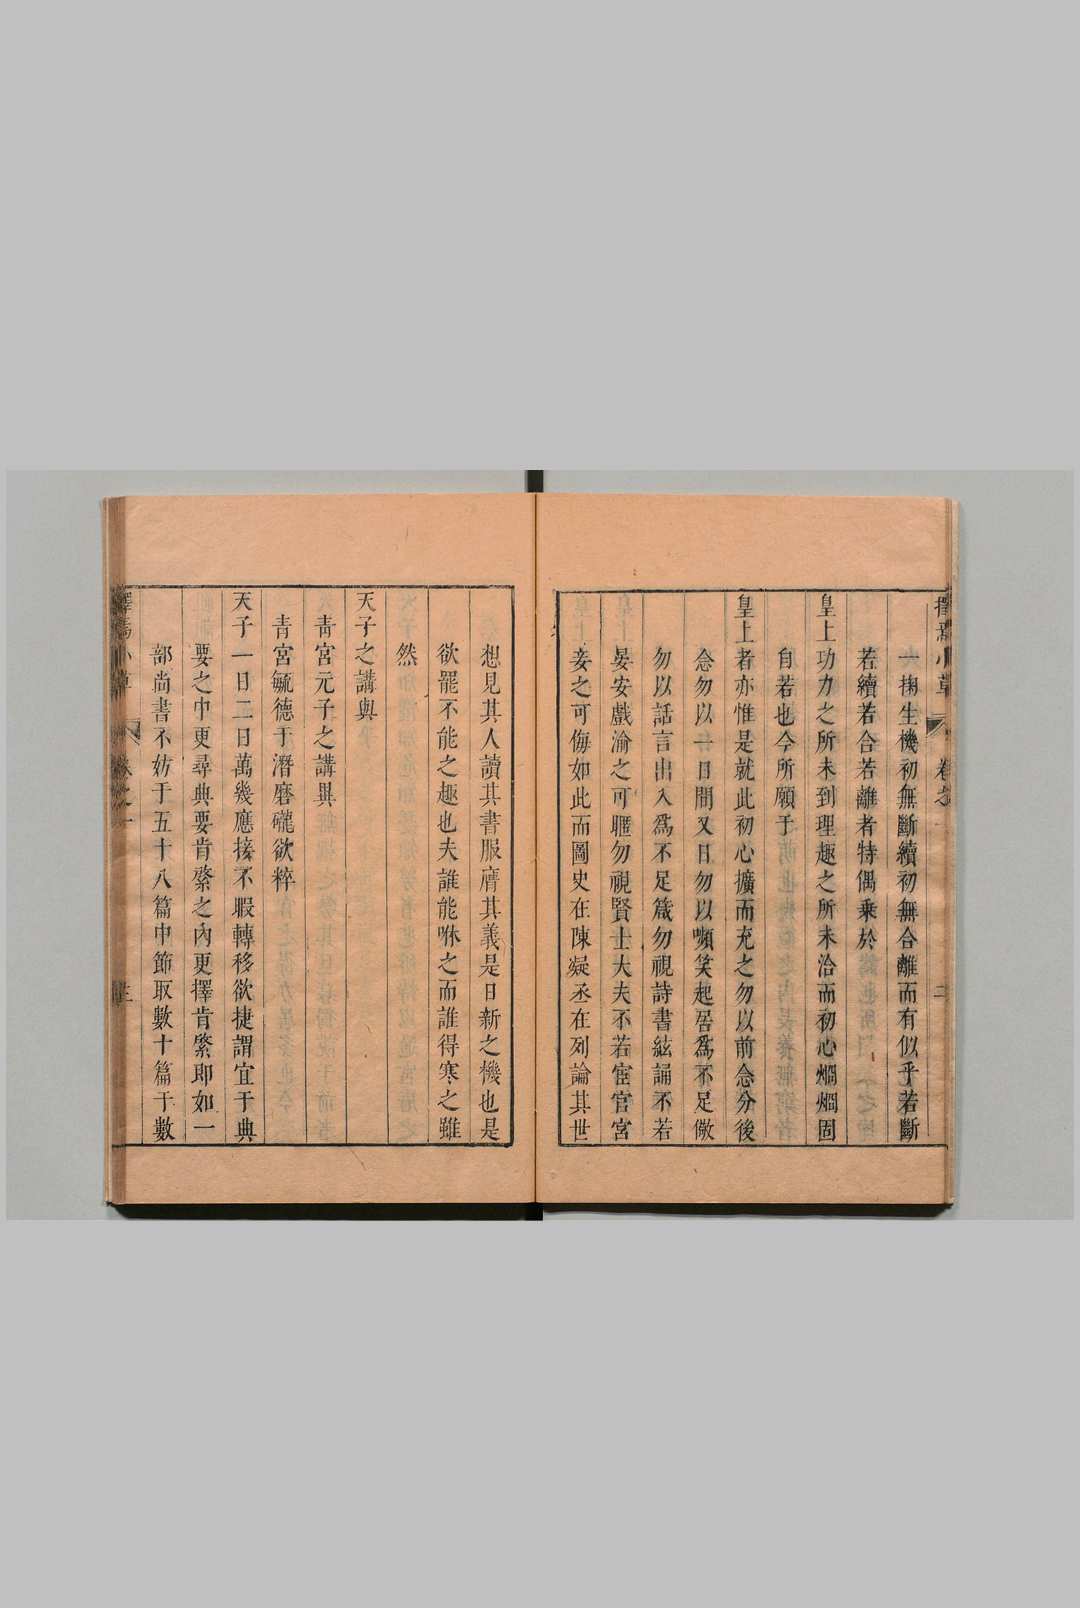 一掬生機初無斷續初無合離而有似乎若斷
若續若合若離者特偶乘於
皇上功力之所未到理趣之所未洽而初心烱烱固
自若也今所願于
皇上者亦惟是就此初心擴而充之勿以前念分後
念勿以一日間又日勿以嚬笑起居爲不足儆
勿以話言出入爲不足箴勿視詩書絃誦不若
晏安戲渝之可暱勿視賢士大夫不若宦官宮
妾之可侮如此而圖史在陳凝丞在列論其世
想見其人讀其書服膺其義是日新之機也是
欲罷不能之趣也夫誰能咻之而誰得寒之雖
然
天子之講與
青宮元子之講異
青宮毓德于潛磨礲欲粹
天子一日二日萬幾應接不暇轉移欲捷謂宜于典
要之中更尋典要肯綮之內更擇肯綮即如一
部尚書不妨于五十八篇中節取數十篇于數